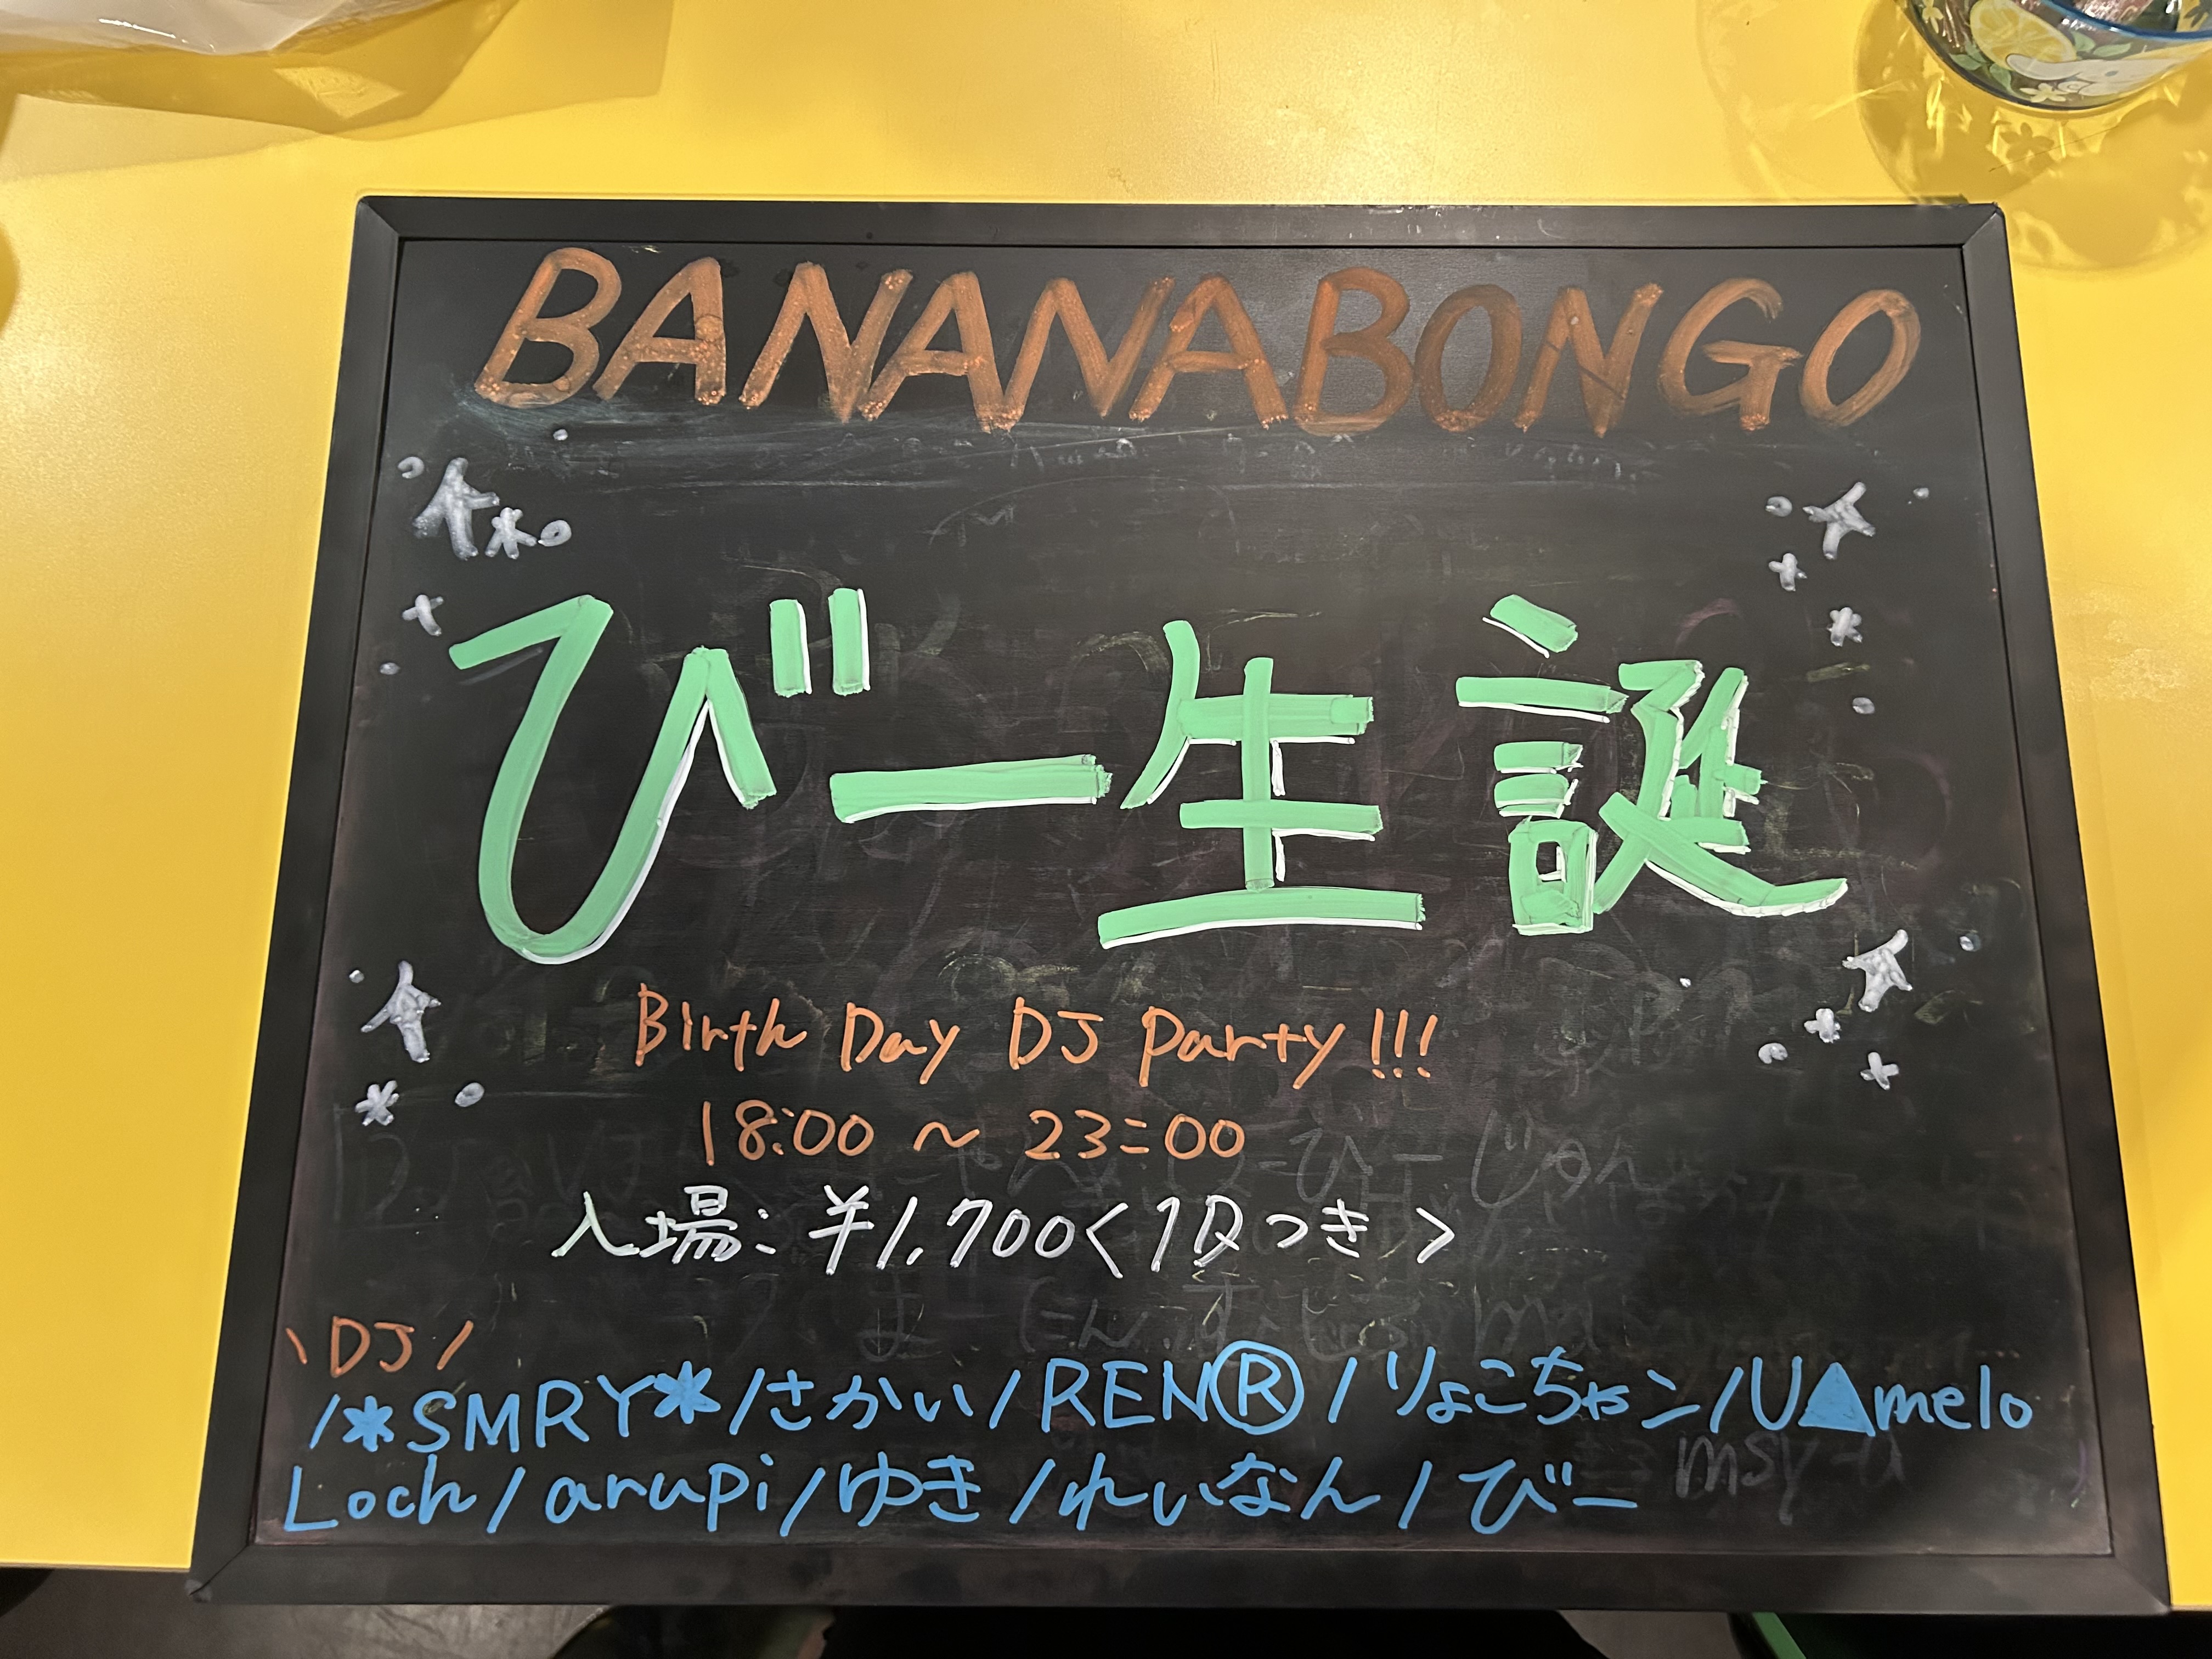 BANANABONGO
びー生誕
Birth Day DJ Party!!!
18:00 ~ 23:00
入場:¥1,700<1Dつき>
\DJ/
/*SMRY*/さかい/REN®/りょこちゃン/U▲melo
Loch/arupi/ゆき/れいなん/びー
msy-u